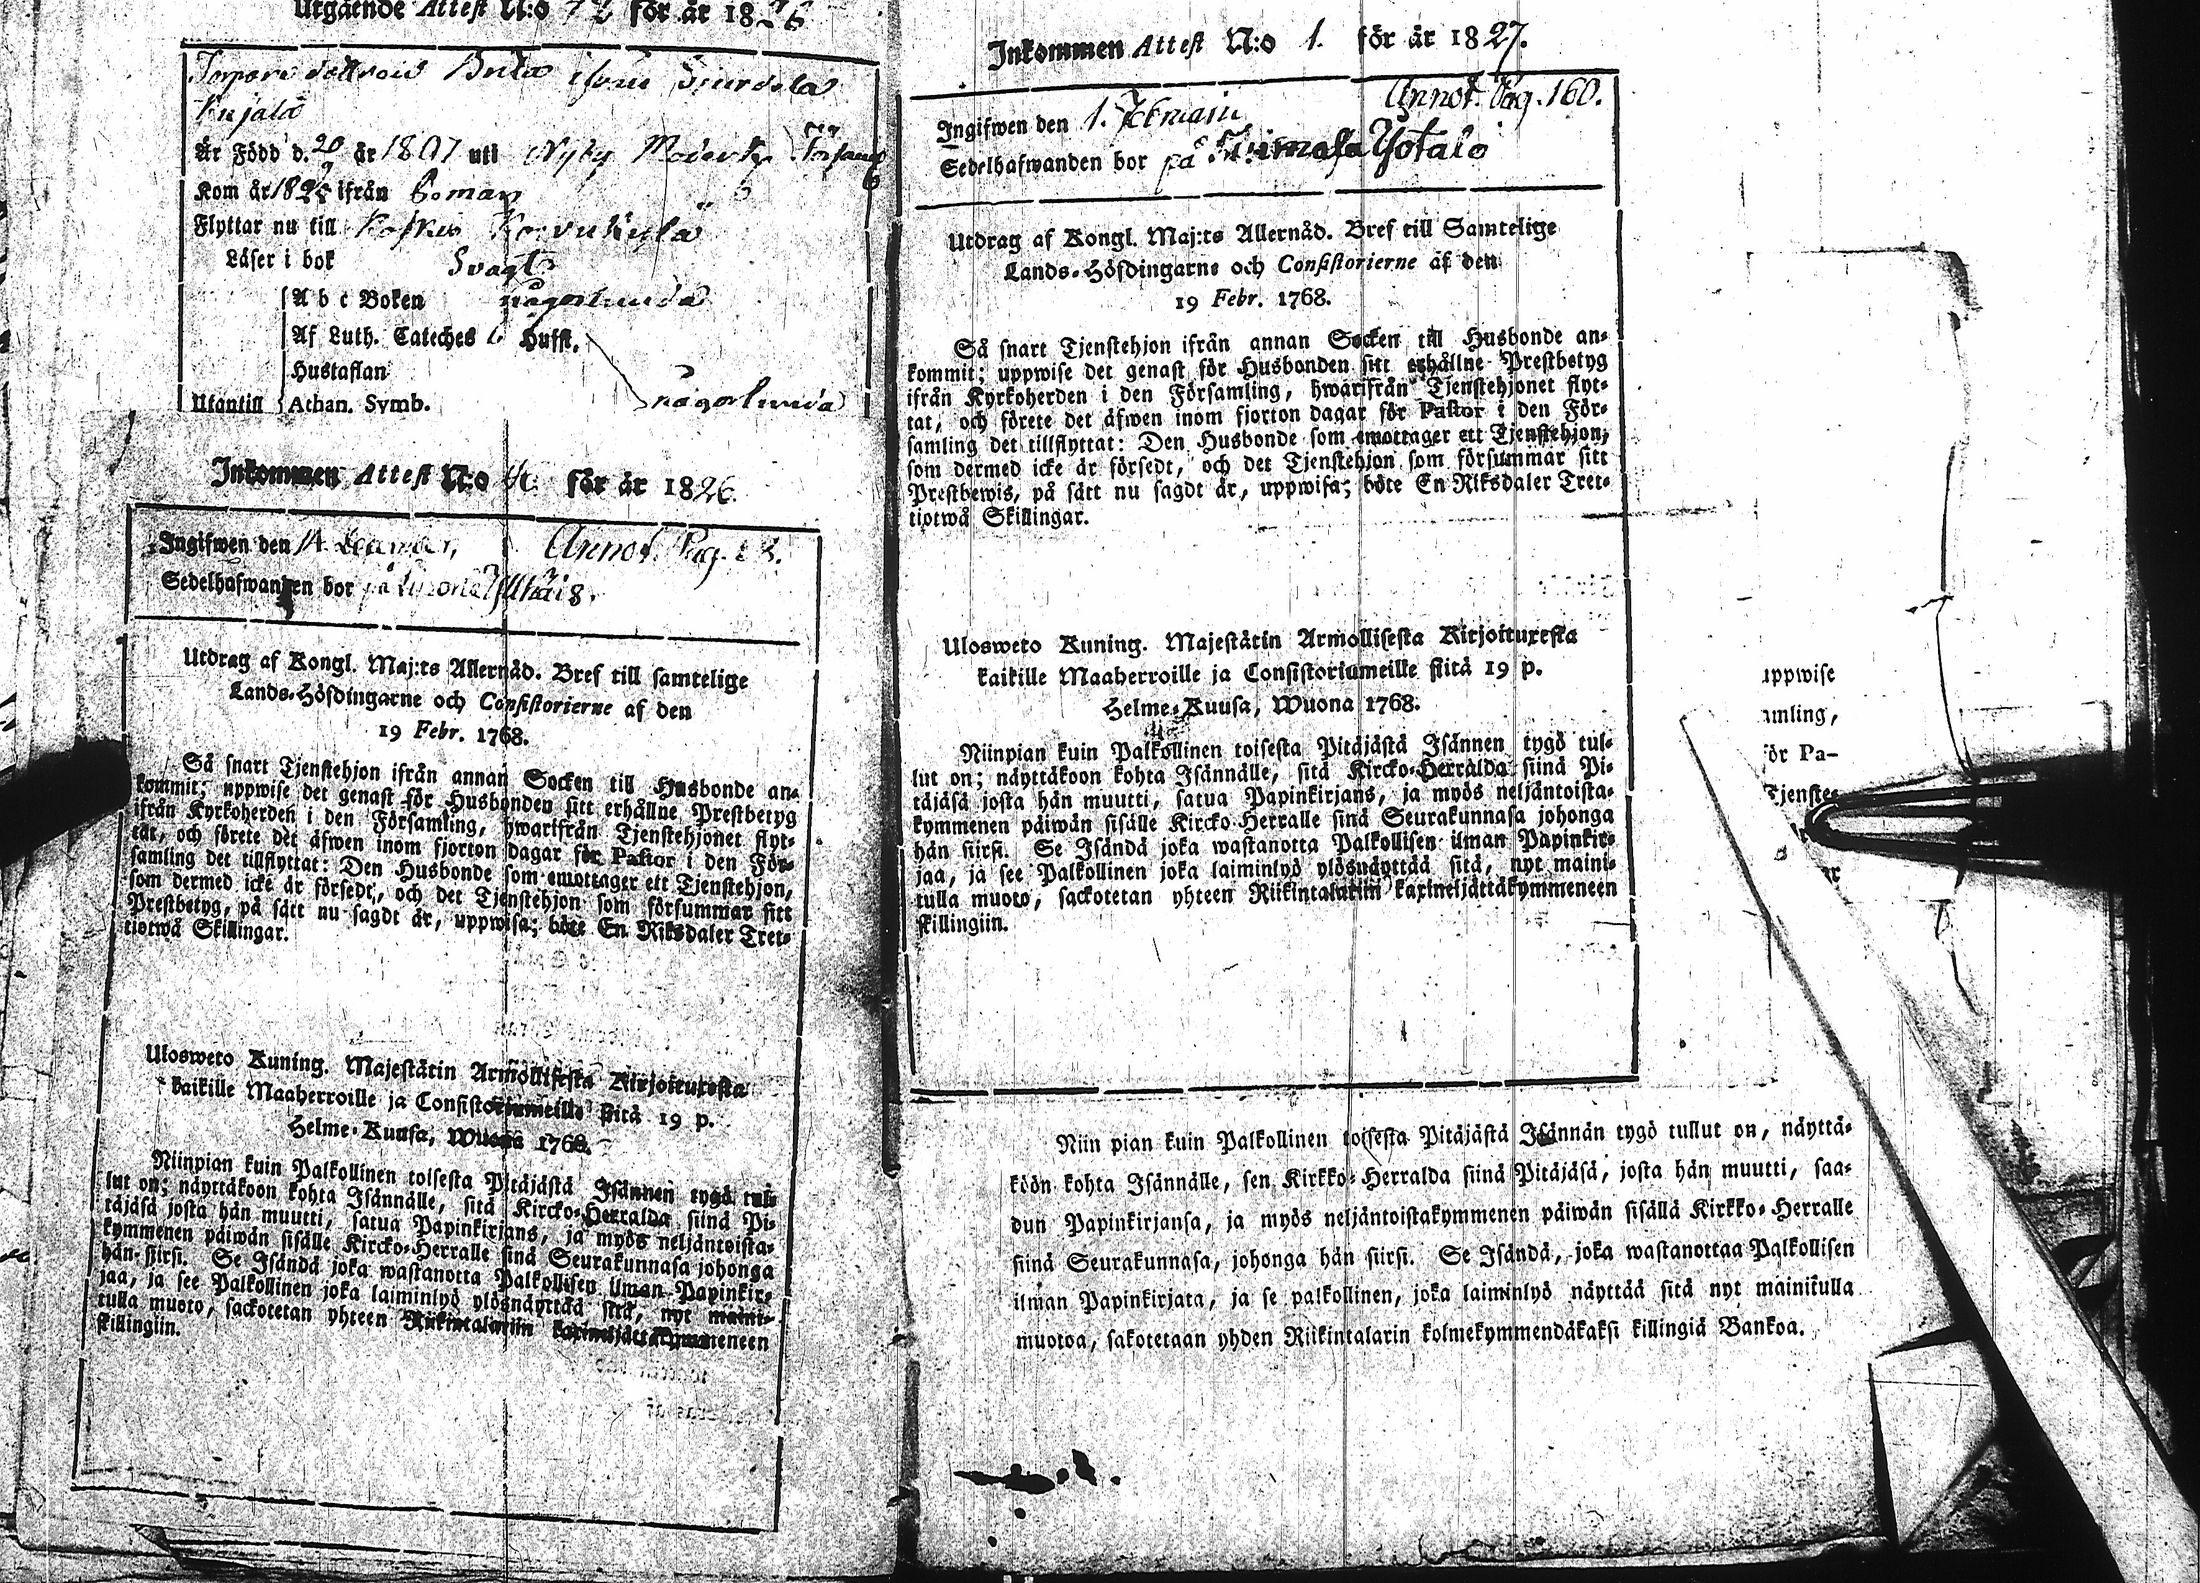 Utgående Attest N:o 72 för år 1826
Brita ifrån
Kujala
Är Född d. 20/9 år 1807 uti Nyky
Kom år 182 ifrån
Flyttar nu till Koskis
Läser i bok Svagt
A b c Boken någorlunda
Af Luth. Cateches 6 Hufst.
Hustaflan
Utantill Athan. Symb. någorlunda
Inkommen Attest N:o för år 1826.
Ingifwen den 14 December, Annot. Pag.
Sedelhafwanden bor på
Utdrag af Kongl. Maj:ts Allernåd. Bref till samtelige
Lands-Höfdingarne och Consistorierne af den
19 Febr. 1768.
Så snart Tjenstehjon ifrån annan Socken till Husbonde an-
kommit; uppwise det genast för Husbonden sitt erhållne Prestbetyg
ifrån Kyrkoherden i den Församling, hwarifrån Tjenstehjonet flyt-
tat, och förete det äfwen inom fjorton dagar för Pastor i den För-
samling det tillflyttat: Den Husbonde som emottager ett Tjenstehjon,
som dermed icke är försedt, och det Tjenstehjon som försummar sitt
Prestbetyg, på sätt nu sagdt är, uppwisa; böte En Riksdaler Tret-
tiotwå Skillingar.
Ulosweto Kuning. Majestätin Armollisesta Kirjoituxesta
kaikille Maaherroille ja Consistoriumeille siitä 19 p.
Helme-Kuusa, Wuona 1768.
Niinpian kuin Palkollinen toisesta Pitäjästä Isännen tygö tul-
lut on; näyttäkoon kohta Isännälle, sitä Kircko-Herralda siinä Pi-
täjäsä josta hän muutti, satua Papinkirjans, ja myös neljäntoista-
kymmenen päiwän sisälle Kircko-Herralle sinä Seurakunnasa johonga
hän siirsi. Se Isändä joka wastanotta Palkollisen ilman Papinkir-
jaa, ja see Palkollinen joka laiminlyö ylösnäyttää sitä, nyt maini-
tulla muoto, sackotetan yhteen Riikintalariin kaxineljättäkymmeneen
skillingiin.
Inkommen Attest N:o 1. för år 1827.
Annot. Pag. 160.
Ingifwen den 1. Februarii
Sedelhafwanden bor på Yötalo
Utdrag af Kongl. Maj:ts Allernåd. Bref till Samtelige
Lands-Höfdingarne och Consistorierne af den
19 Febr. 1768.
Så snart Tjenstehjon ifrån annan Socken till Husbonde an-
kommit; uppwise det genast för Husbonden sitt erhållne Prestbetyg
ifrån Kyrkoherden i den Församling, hwarifrån Tjenstehjonet flyt-
tat, och förete det äfwen inom fjorton dagar för Pastor i den För-
samling det tillflyttat: Den Husbonde som emottager ett Tjenstehjon,
som dermed icke är försedt, och det Tjenstehjon som försummar sitt
Prestbewis, på sätt nu sagdt är, uppwisa; böte En Riksdaler Tret-
tiotwå Skillingar.
Ulosweto Kuning. Majestätin Armollisesta Kirjoituxesta
kaikille Maaherroille ja Consistoriumeille siitä 19 p.
Helme-Kuusa, Wuona 1768.
Niinpian kuin Palkollinen toisesta Pitäjästä Isännen tygö tul-
lut on; näyttäkoon kohta Isännälle, sitä Kircko-Herralda siinä Pi-
täjäsä josta hän muutti, satua Papinkirjans, ja myös neljäntoista-
kymmenen päiwän sisälle Kircko-Herralle sinä Seurakunnasa johonga
hän siirsi. Se Isändä joka wastanotta Palkollisen ilman Papinkir-
jaa, ja see Palkollinen joka laiminlyö ylösnäyttää sitä, nyt maini-
tulla muoto, sackotetan yhteen Riikintalariin kaxineljättäkymmeneen
skillingiin.
uppwise
amling,
ör Pa-
Tjenste-
Niin pian kuin Palkollinen toisesta Pitäjästä Isännän tygö tullut on, näyttä-
köön kohta Isännälle, sen Kirkko-Herralda siinä Pitäjäsä, josta hän muutti, saa-
dun Papinkirjansa, ja myös neljäntoistakymmenen päiwän sisällä Kirkko-Herralle
siinä Seurakunnasa, johonga hän siirsi. Se Isändä, joka wastanottaa Palkollisen
ilman Papinkirjata, ja se palkollinen, joka laiminlyö näyttää sitä nyt mainitulla
muotoa, sakotetaan yhden Riikintalarin kolmekymmendäkaksi killingiä Bankoa.